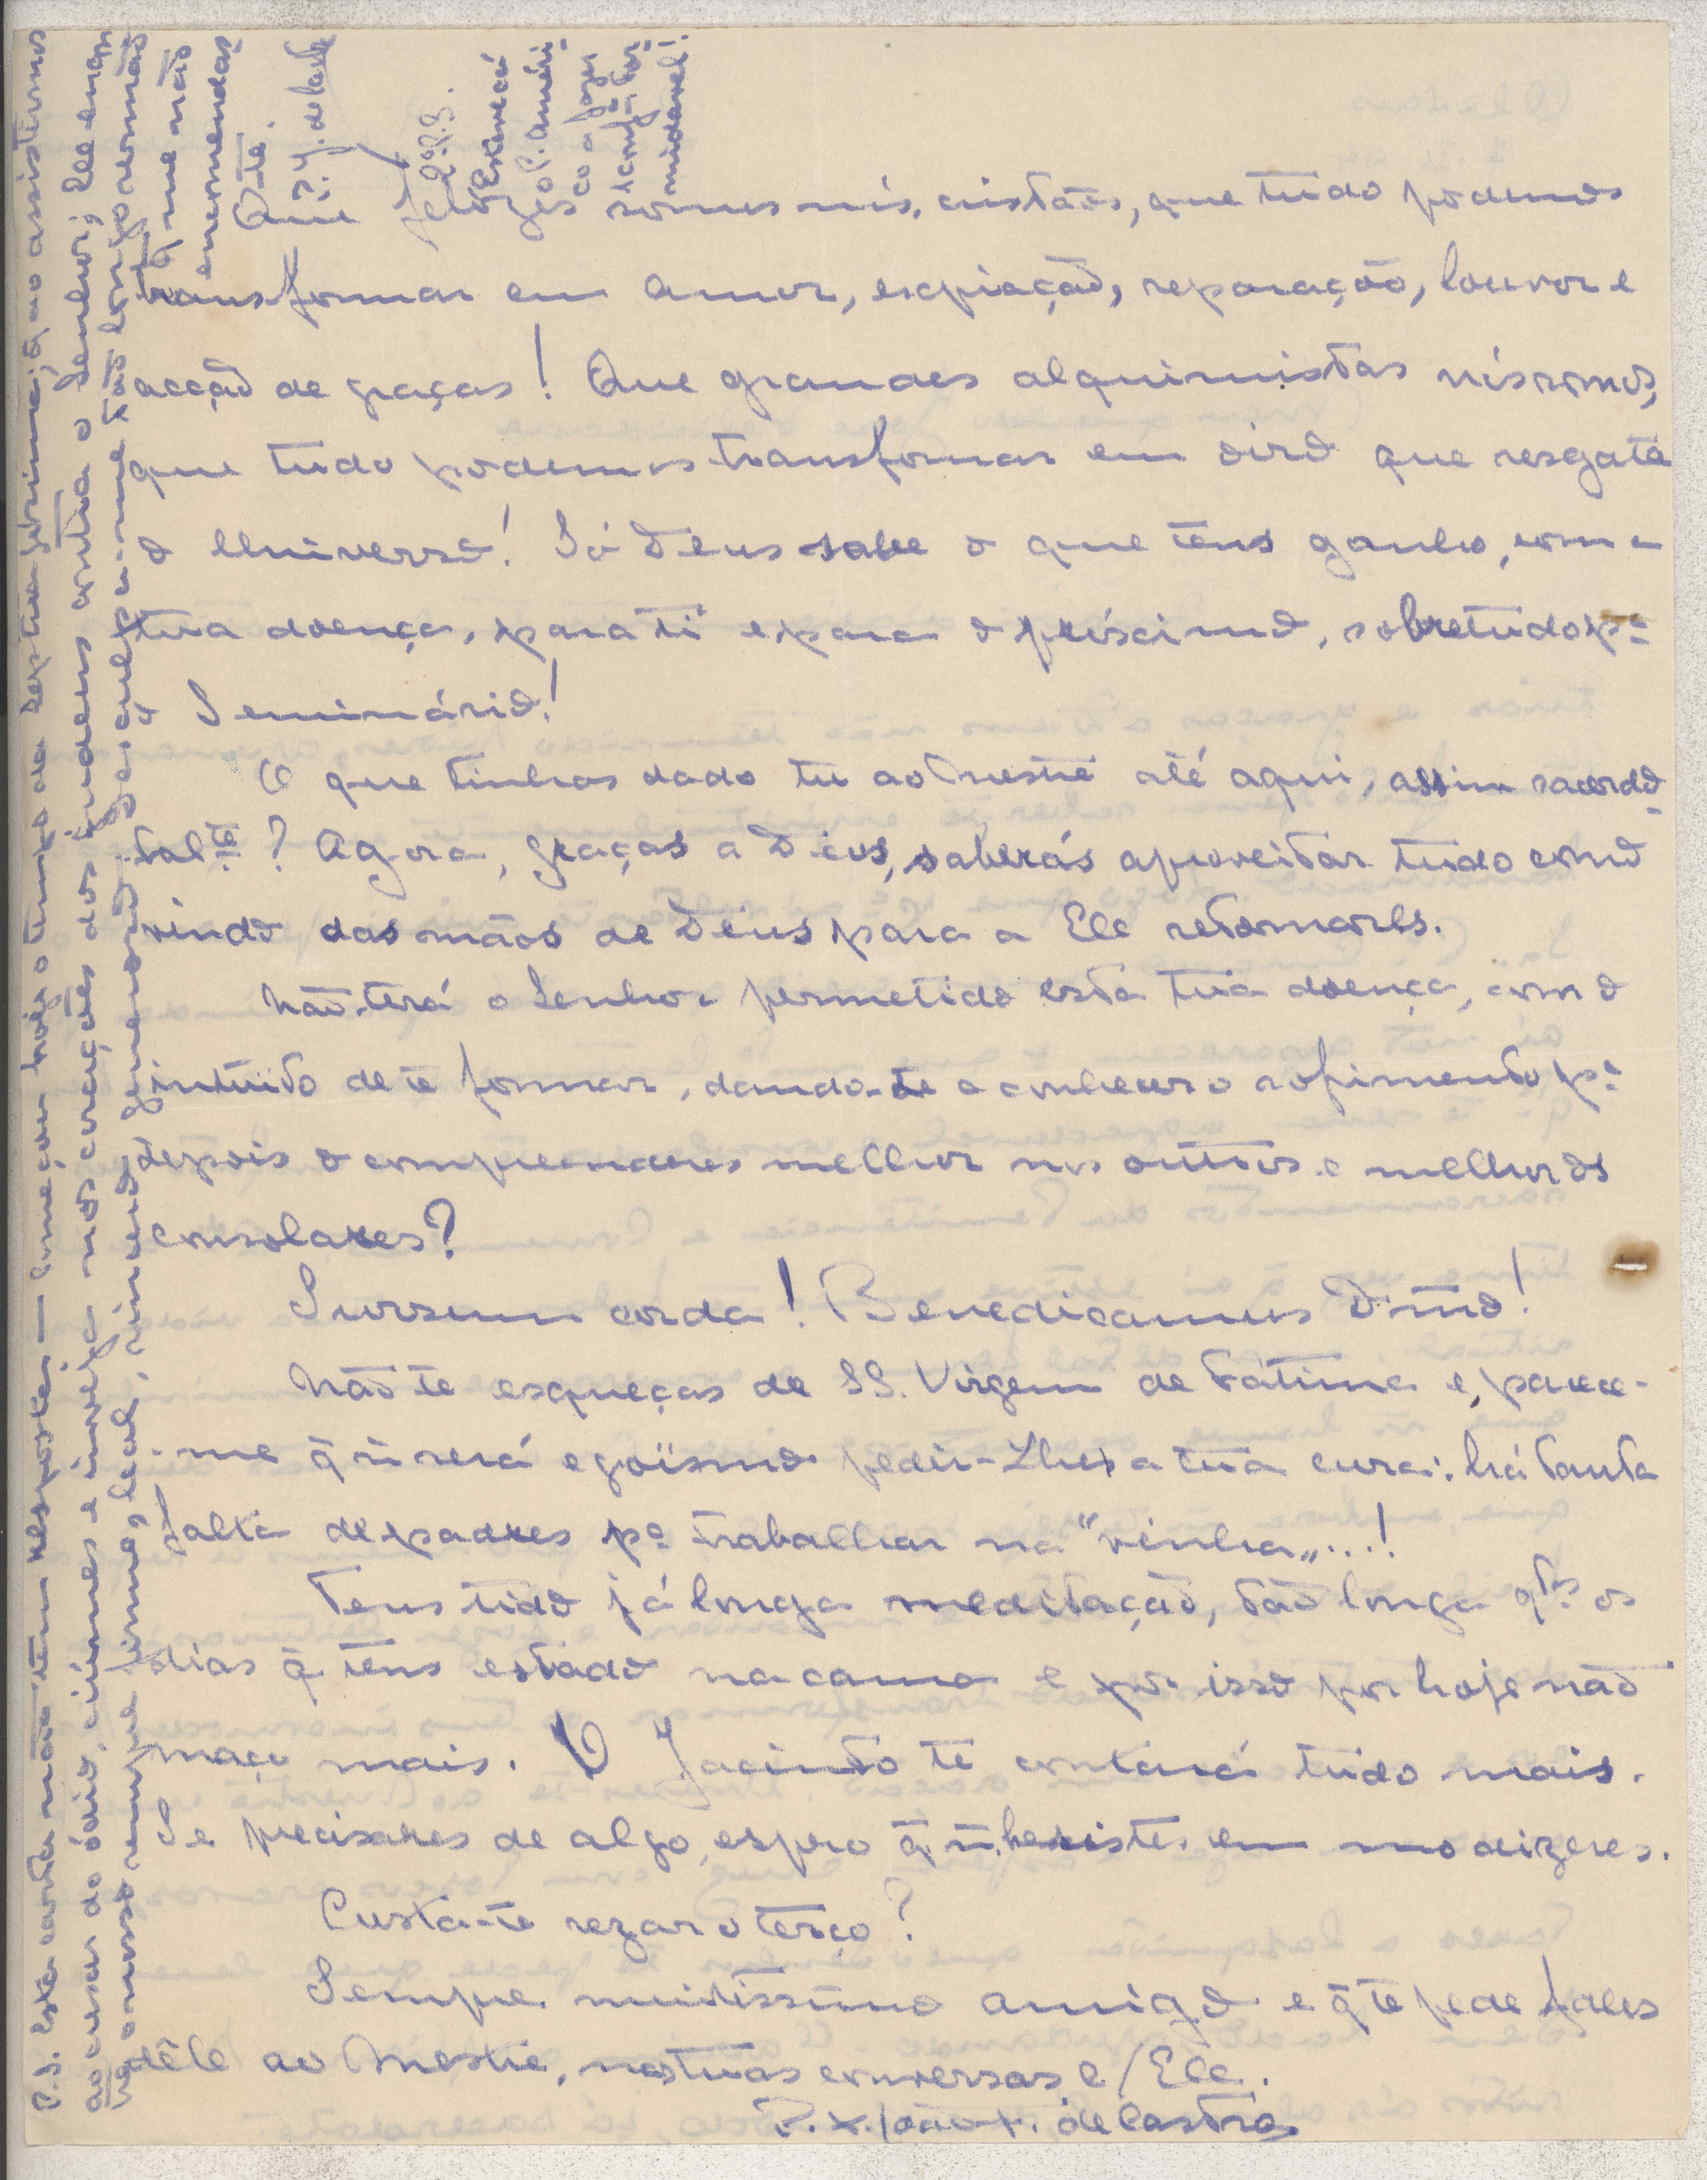 Que felizes somos nós, cristãos, que tudo podemos
transformar em amor, expiação, reparação, louvor e
acção de graças! Que grandes alquimistas nós somos,
que tudo podemos transformar em oiro que resgate
o Universo! Só Deus sabe o que tens ganho, com a
tua doença, para ti e para o próximo, sobretudo pª
o Seminário!
O que tinhas dado tu ao Mestre até aqui, assim sacerdo-
talte? Agora, graças a Deus, saberás aproveitar tudo como
vindo das mãos de Deus para a Ele retornares.
Não terá o Senhor permetido esta tua doença, com o
intuito de te formar, dando-te a conhecer o sofrimento pª
depois o compreenderes melhor nos outros e melhor os
consolares?
Sursum corda! Benedicamus Dno!
Não te esqueças de SS. Virgem de Fátima e, parece-
-me q̃ ñ será egoïsmo pedir-Lhe a tua cura: há tanta
falta de padres pª trabalhar na "vinha"...!
Tens tido já longa meditação, tão longa qtos os
dias q̃ tens estado na cama e por isso por hoje não
maço mais. O Jacinto te contará tudo mais.
Se precisares de algo, espero q̃ ñ hesistes em mo dizeres.
Custa-te rezar o terço?
Sempre muitíssimo amigo e q̃ te pede fales
dêle ao Mestre, nas tuas conversas c/ Ele.
P. João de Castro
P.S. Esta carta não tem resposta — Começou hoje o tempo da Septuagésima; q̃ ao assistirmos
ao cusar do ódio, ciúmes e inveja nos corações dos judeus contra o Senhor, Ele enc
o nosso sempre firme, leal, sincero, generoso. Desculpa-me tão longo sermão
que não
encomendas
te.
P. J. de Castro
2º P.S.
Esqueci
o P. Améri-
co a fazer
confª for-
midavel!